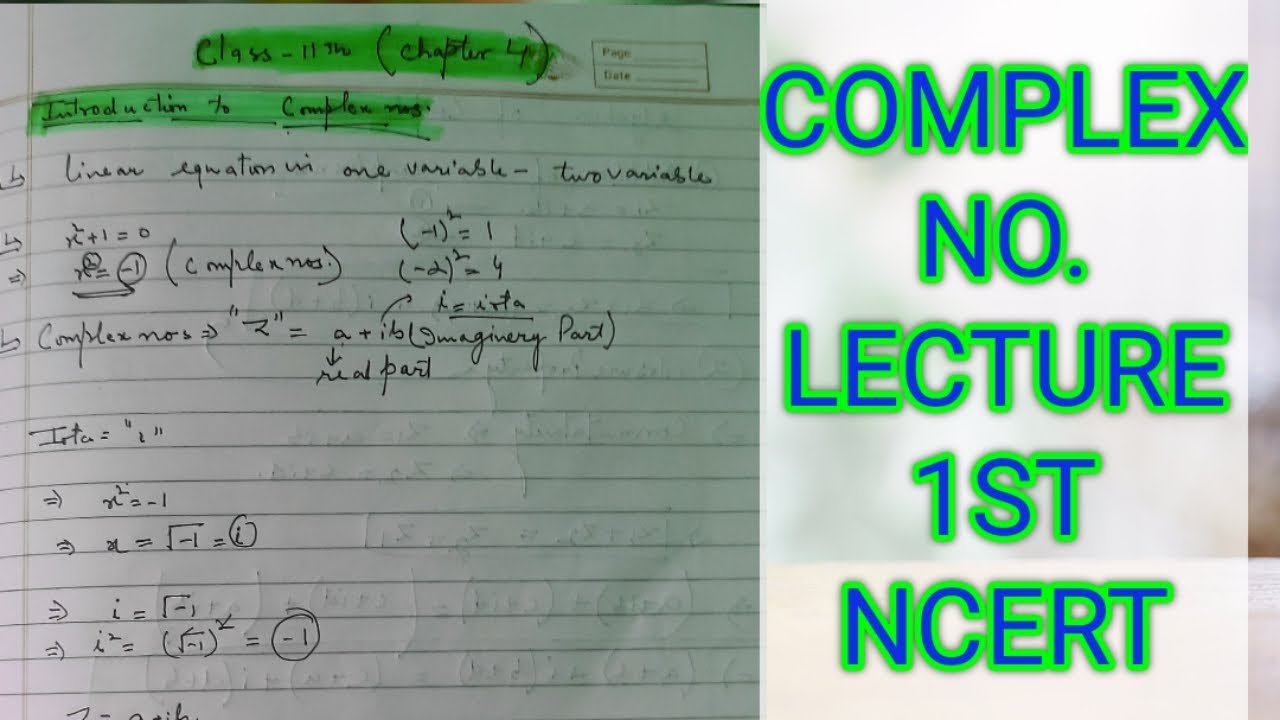 Class - 11th (Chapter 4)
Page
Date
Introduction to Complex nos.
↳ linear equation in one variable - two variable
↳ x²+1=0 (-1)² = 1
⇒ x² = -1 (Complex nos.) (-2)² = 4
i = iota
↳ Complex nos ⇒ "Z" = a + ib (Imaginery Part)
real part
Iota = "i"
⇒ x² = -1
⇒ x = √-1 = i
⇒ i = √-1
⇒ i² = (√-1)² = -1
Z = a+ib
COMPLEX
NO.
LECTURE
1ST
NCERT